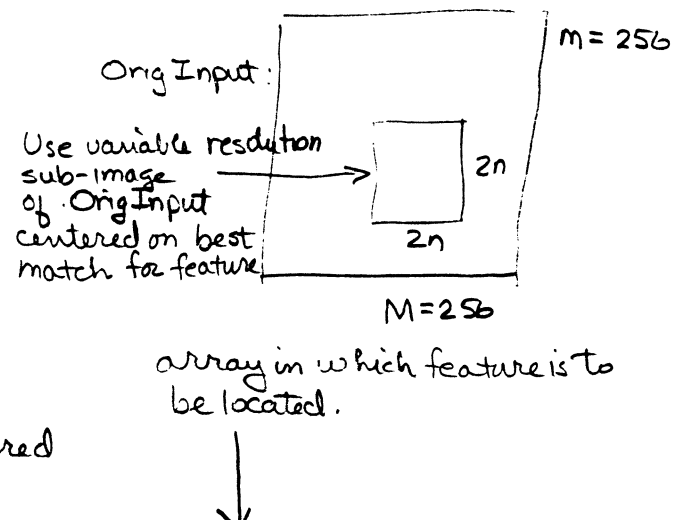 m = 256
Orig Input:
Use variable resolution
sub-image
of Orig Input
centered on best
match for feature
2n
2n
M = 256
array in which feature is to
be located.
red